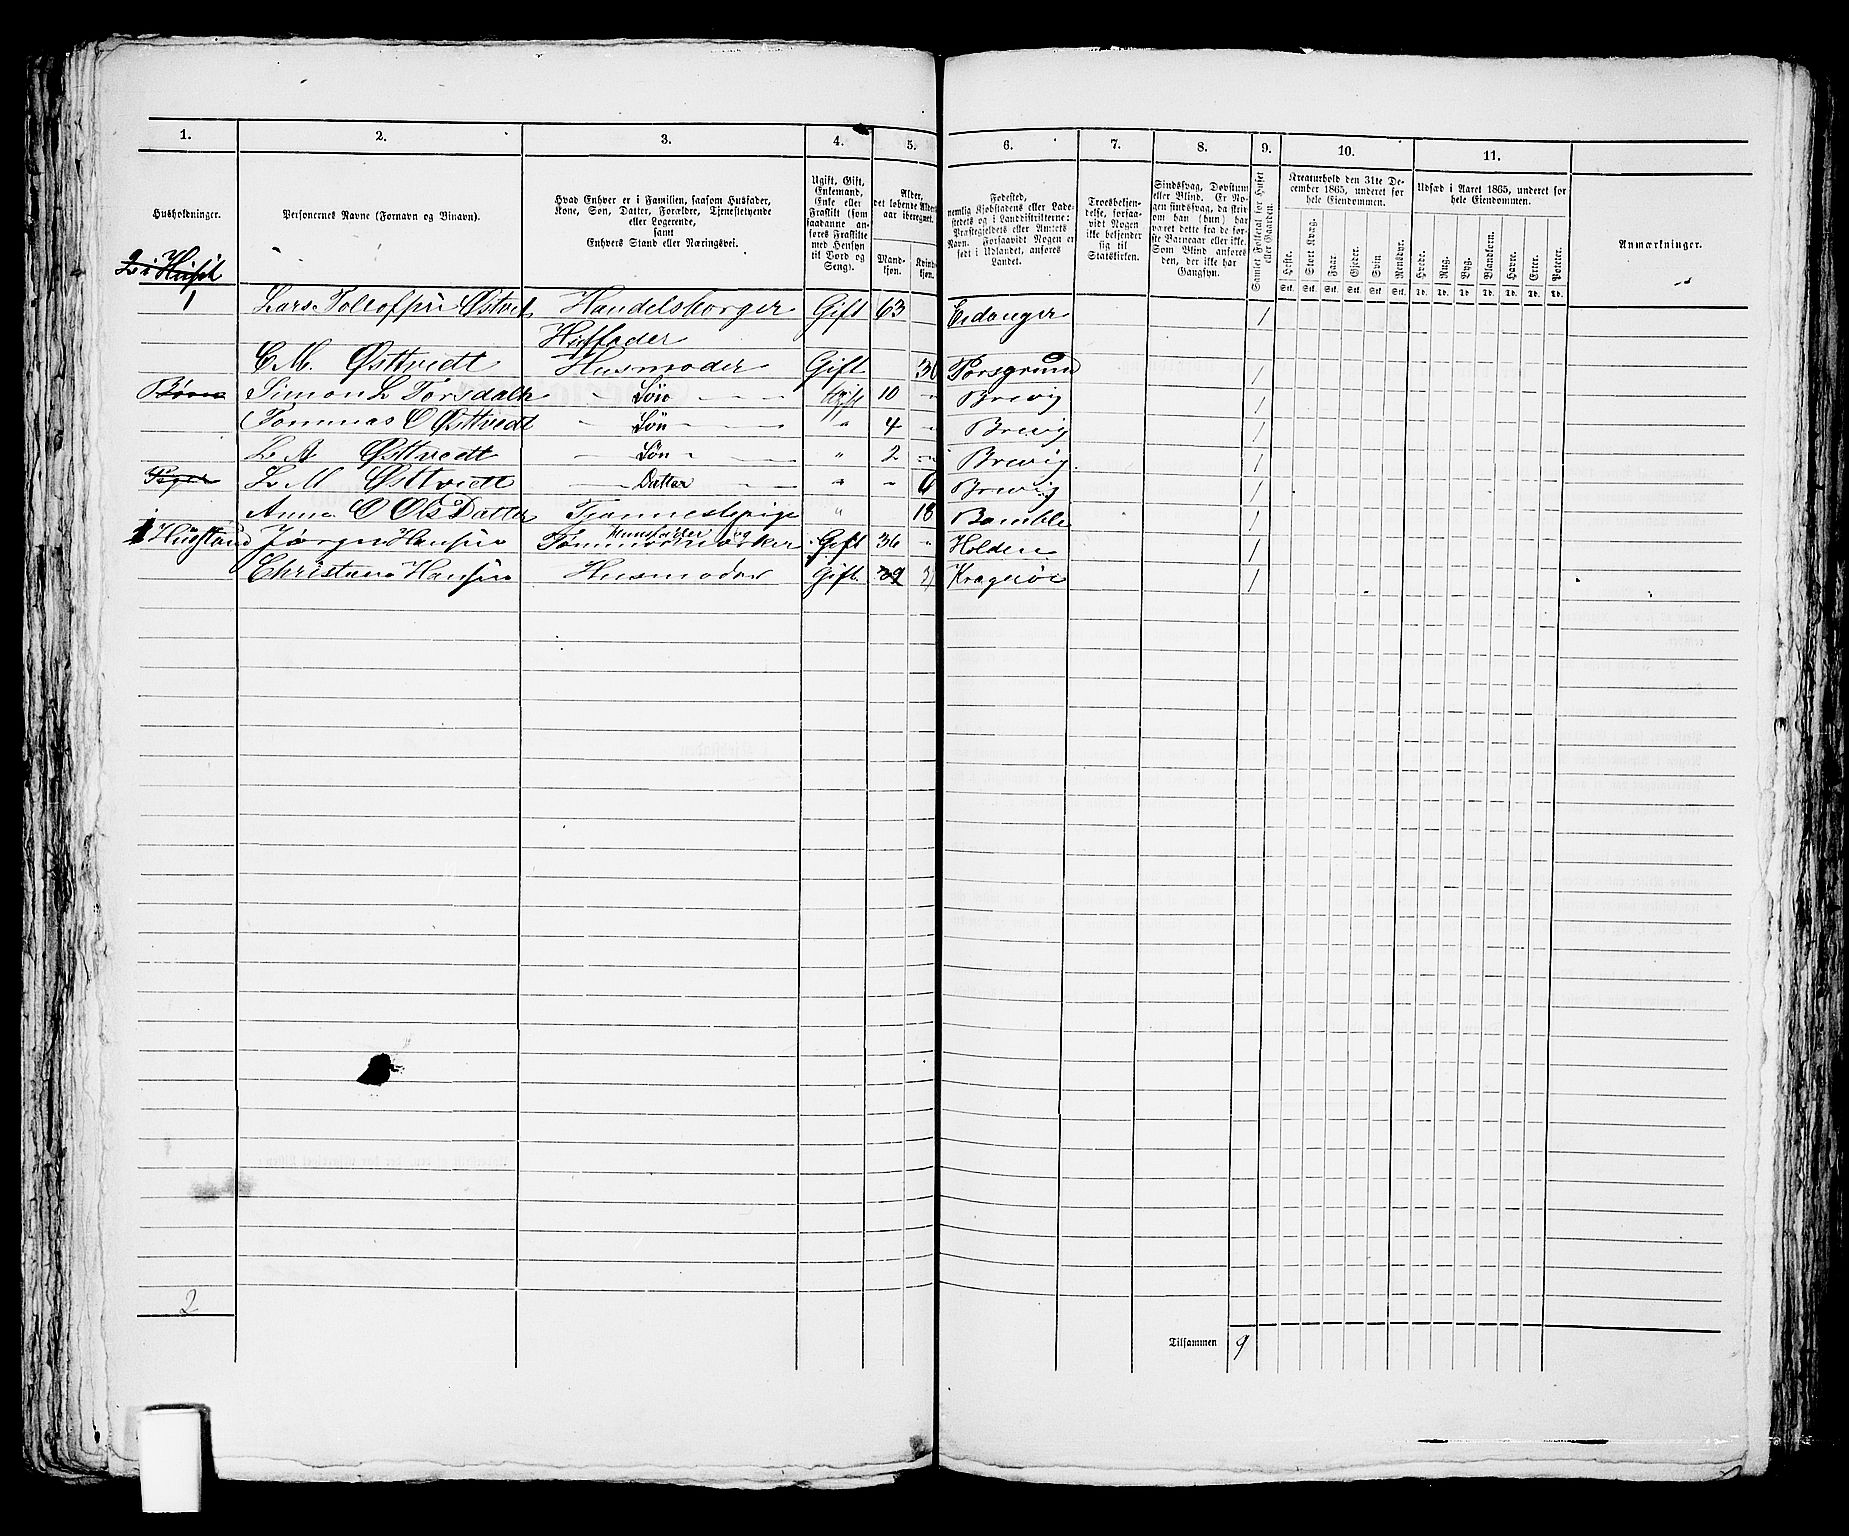 1. 2. 3. 4. 5. 6. 7. 8. 9. 10. 11.
Husholdninger.
Personernes Navne (Fornavn og Vinavn).
Hvad Enhver er i Familien, saasom Husfader,
Kone, Søn, Datter, Forældre, Tjenestetyende
eller Logerende,
samt
Enhvers Stand eller Næringsvei.
Ugift, Gift,
Enkemand,
Enke eller
Fraskilt (som
saadanne an-
føres Fraskilte
med Hensyn
til Bord og
Seng).
Alder,
det løbende Alders-
aar iberegnet.
Mand-
kjøn.
Kvinde-
kjøn.
Fødested,
nemlig Kjøbstadens eller Lade-
stedets og i Landdistrikterne:
Præstegjeldets eller Amtets
Navn. Forsaavidt Nogen er
født i Udlandet, anføres
Landet.
Troesbekjen-
delse, forsaa-
vidt Nogen
ikke bekjender
sig til
Statskirken.
Sindssvag, Døvstum
eller Blind. Er No-
gen sindssvag, da skri-
ves om han (hun) har
været dette fra de før-
ste Barneaar eller ikke.
Som Blind anføres
den, der ikke har
Gangsyn.
Samlet Folketal for Huset
eller Gaarden.
Kreaturhold den 31te De-
cember 1865, underet for
hele Eiendommen.
Heste. Stort Kvæg. Faar. Gjeder. Svin Rensdyr.
Stk. Stk. Stk. Stk. Stk. Stk.
Udsæd i Aaret 1865, underet for
hele Eiendommen.
Hvede. Rug. Byg. Blandkorn. Havre. Erter. Poteter.
Td. Td. Td. Td. Td. Td. Td.
Anmærkninger.
2 i Huset
1 Lars Tollofsen Østvet Handelsborger Gift 63 Eidanger 1
Husfader
C M. Østtvedt Husmoder Gift 30 Porsgrund 1
Børn Simon L Torsdalh Søn Ugift 10 " Brevig 1
Tommas O Østtvedt Søn " 4 " Brevig 1
L A Østtvedt Søn " 2 " Brevig 1
Piger L M Østtvedt Datter " " 6 Brevig 1
Anne O Ols Datter Tjannestepige " 18 Bamble 1
1 Huustand Jørgen Hansen Huusfader og Tømmermærker Gift 36 " Holden 1
Christiane Hansen Husmoder Gift 39 Kragerøe 1
2
Tilsammen 9